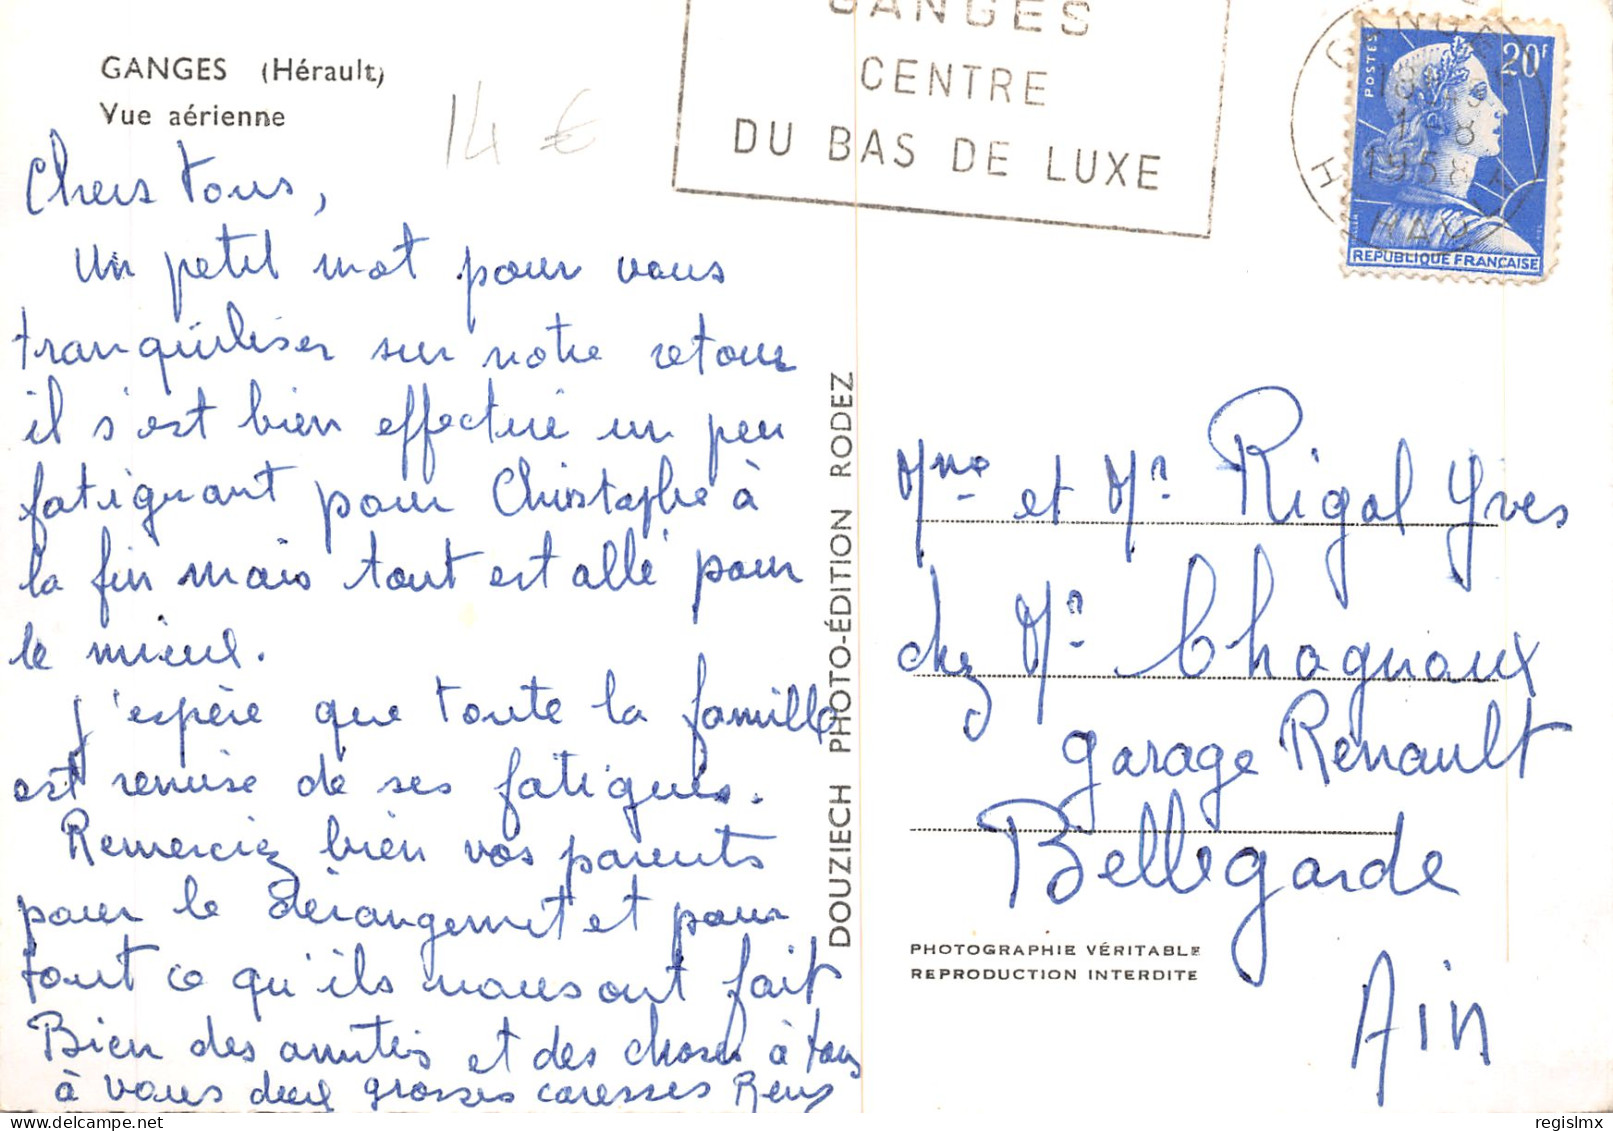 GANGES (Hérault)
Vue aérienne
14 €
Chers tous,
Un petit mot pour vous
tranquiliser sur notre retour
il s'est bien effectué un peu
fatiguant pour Christophe à
la fin mais tout est allé pour
le mieux.
J'espère que toute la famille
est remise de ses fatigues.
Remerciez bien vos parents
pour le dérangement et pour
tout ce qu'ils nous ont fait
Bien des amitiés et des choses à tous
à vous deux grosses caresses
DOUZIECH PHOTO-ÉDITION RODEZ
GANGES
CENTRE
DU BAS DE LUXE
GANGES
1-8
1958
POSTES
20F
REPUBLIQUE FRANÇAISE
Mme et Mr Rigal Yves
chez Mr Chagnoux
garage Renault
Bellegarde
Ain
PHOTOGRAPHIE VÉRITABLE
REPRODUCTION INTERDITE
delcampe.net
regislmx